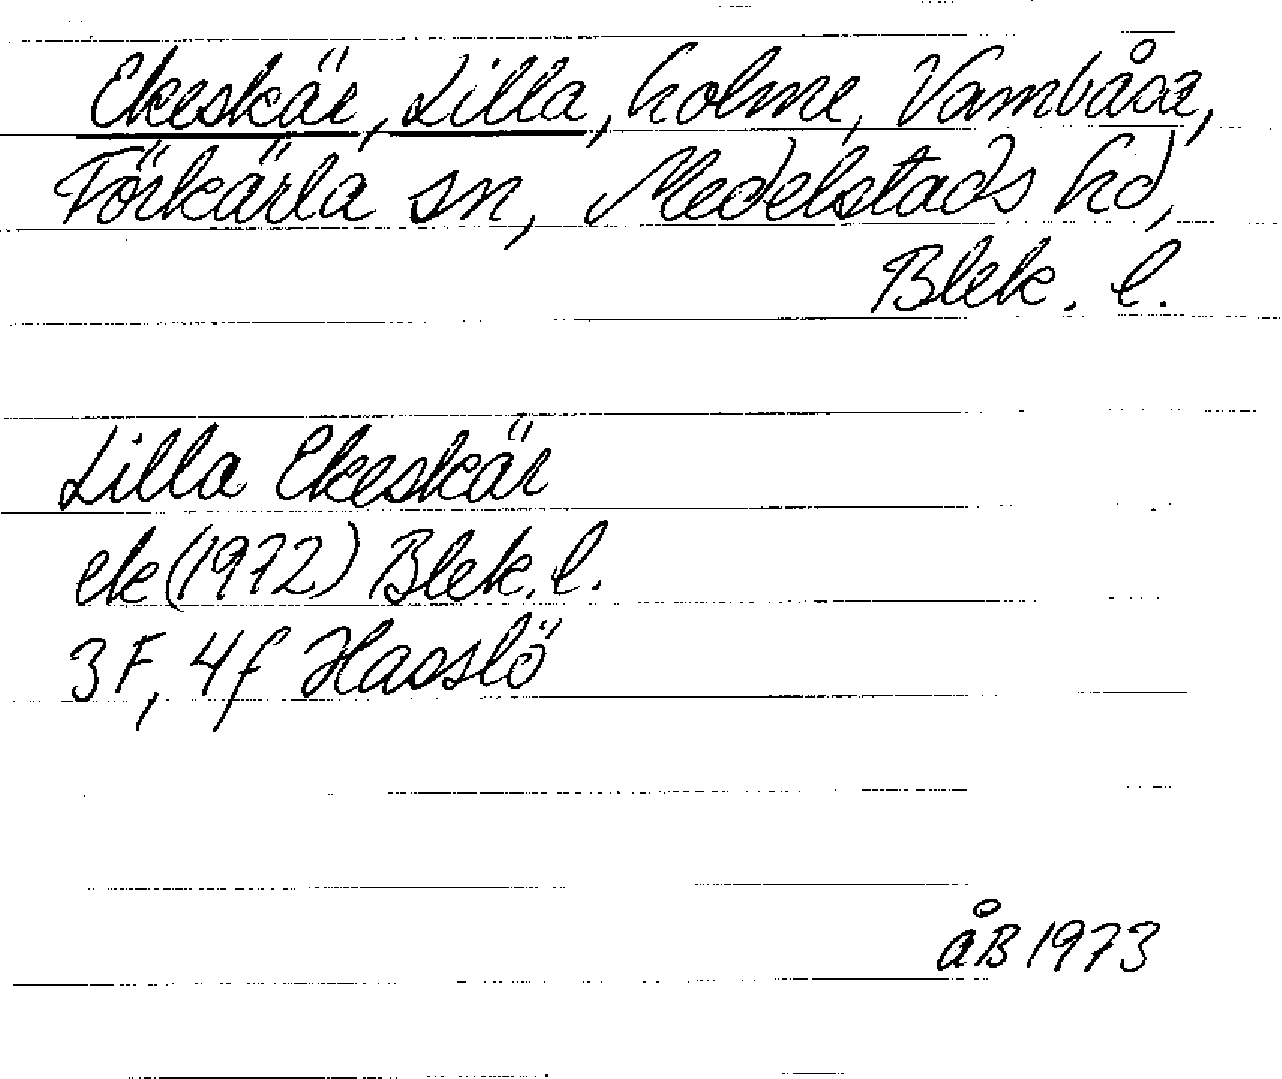 Ekeskär, Lilla, holme, Vambåsa,
Förkärla sn, Medelstads hd,
Blek. l.
Lilla Ekeskär
ek (1972) Blek. l.
3F, 4f Hasslö
åB 1973